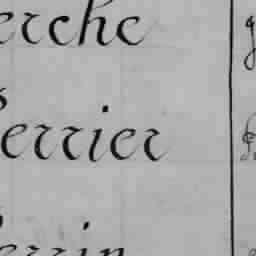 erche
errier
errin